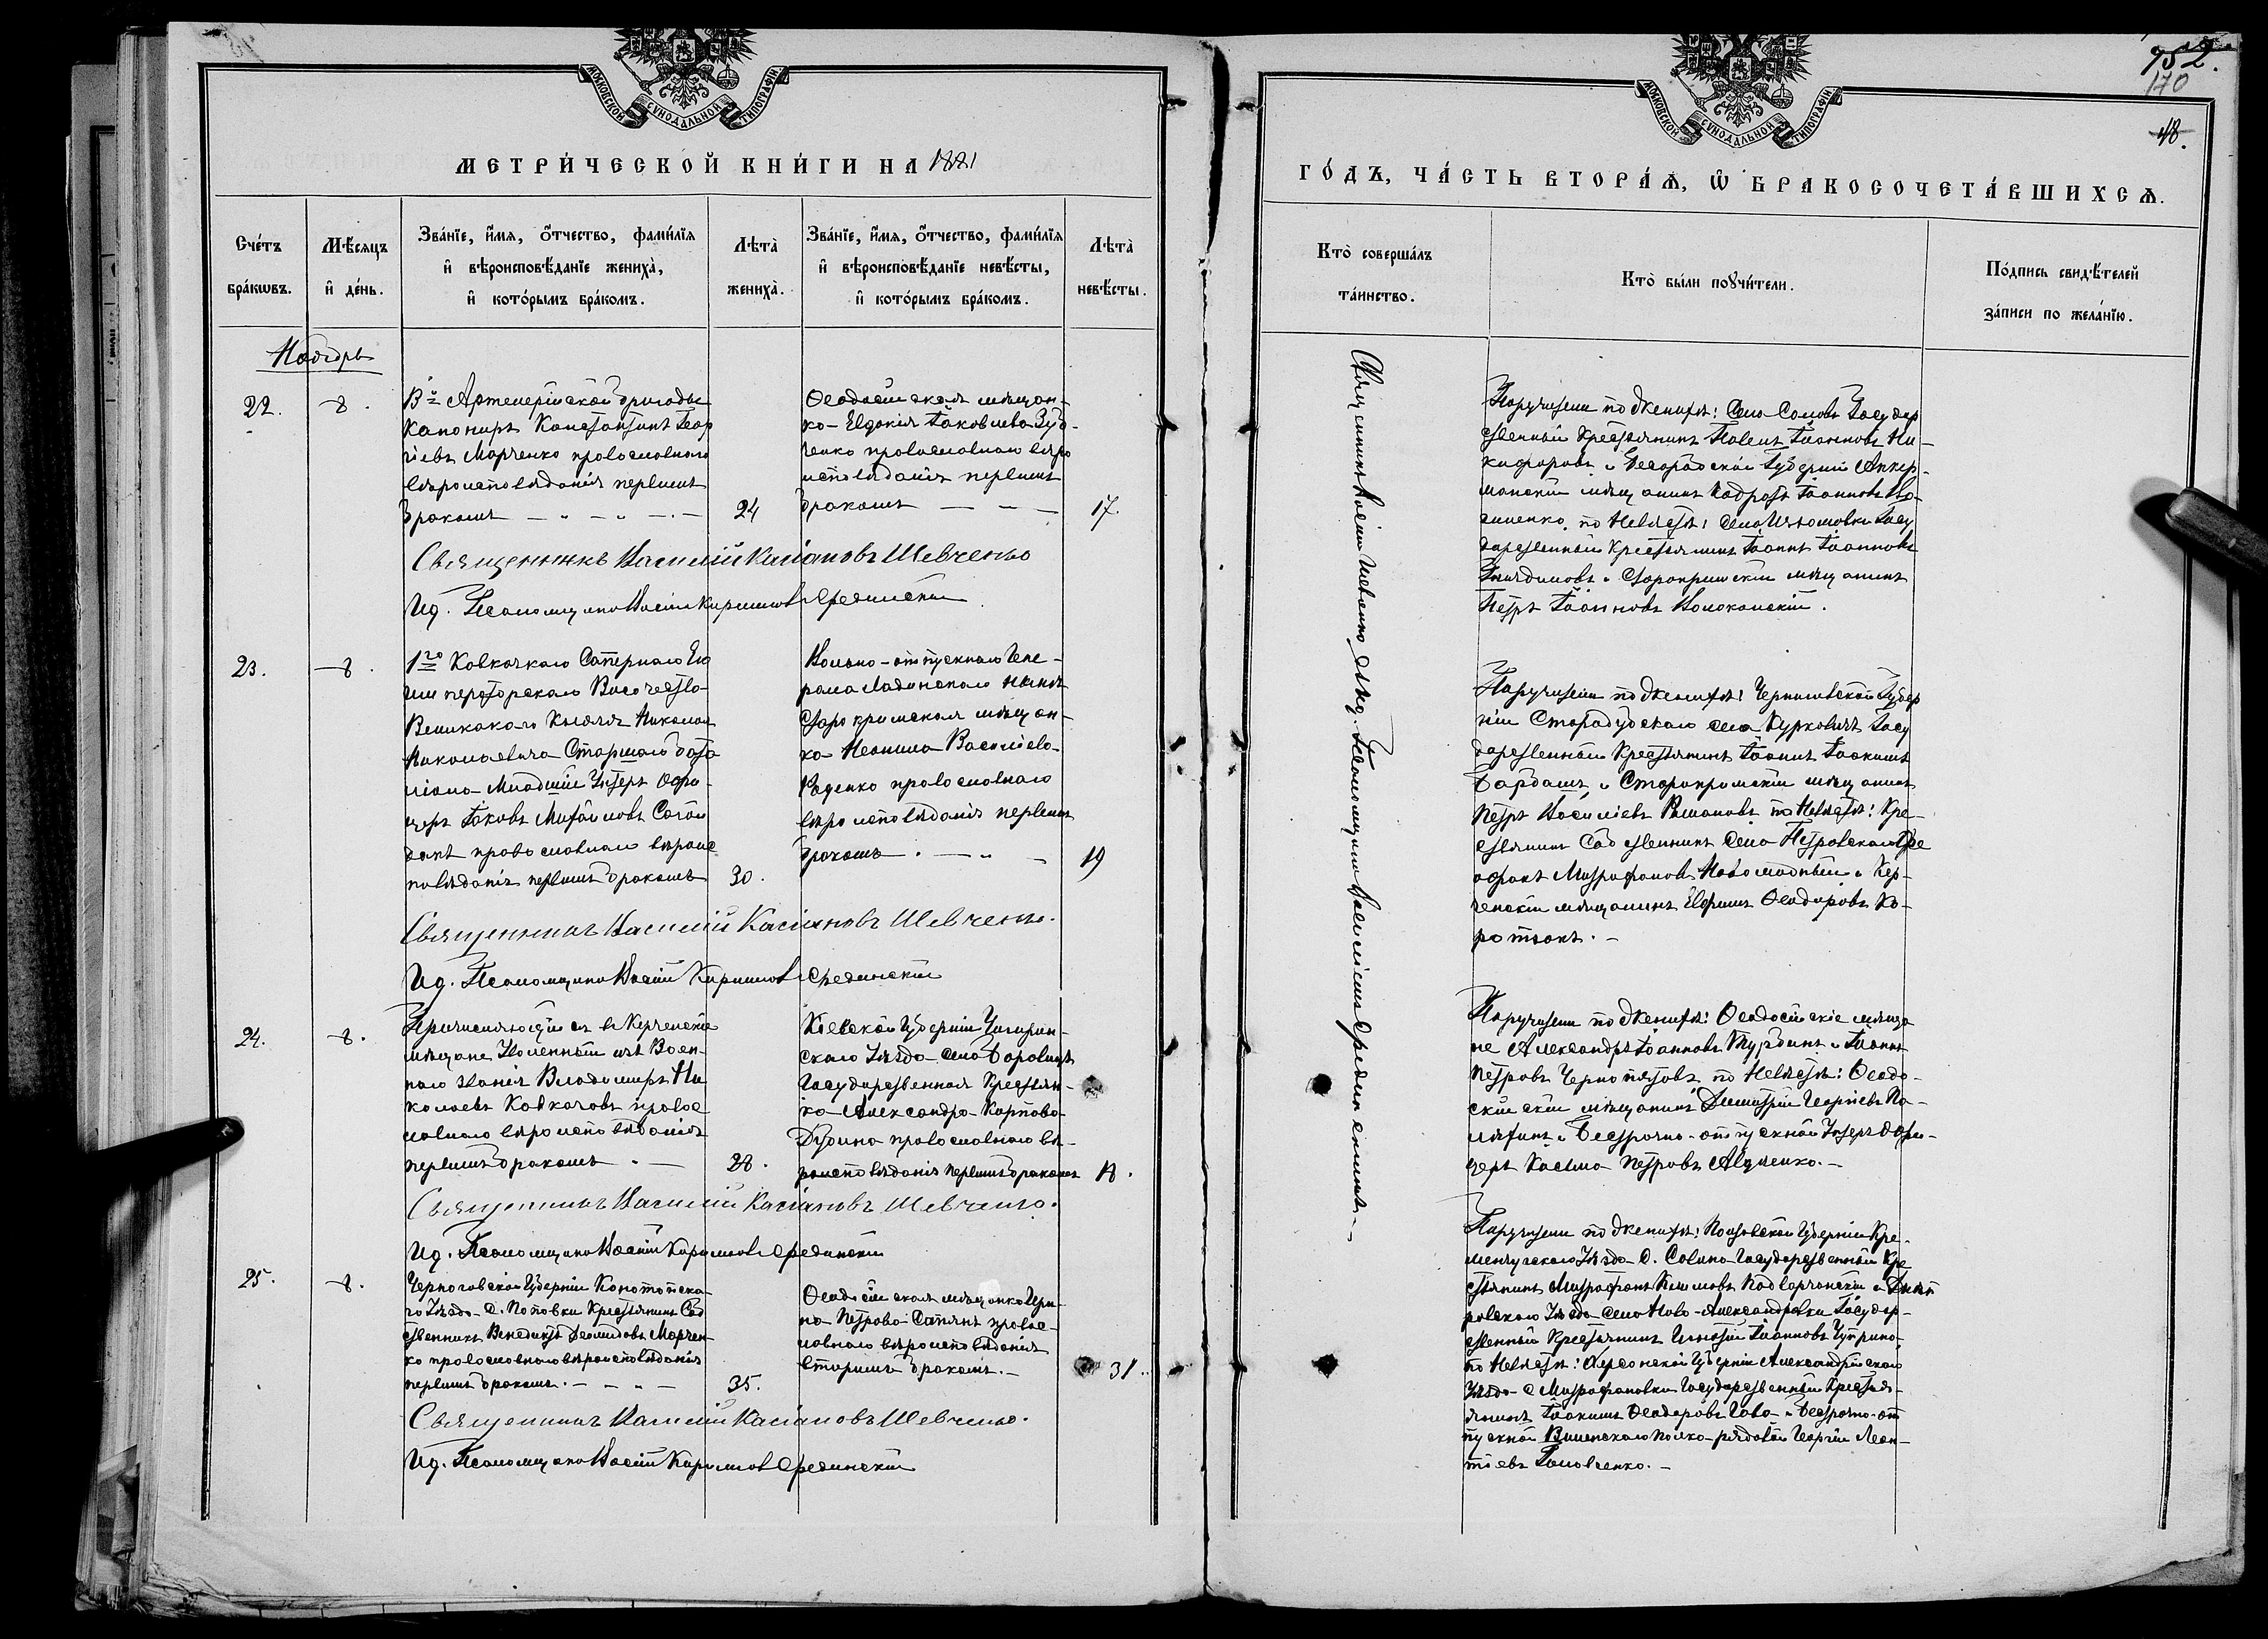 МОСКОВСКОЙ СУНОДАЛЬНОЙ ТИПОГРАФІИ
МЕТРИ́ЧЕСКОЙ КНИ́ГИ НА 1881
Сче́тъ бра́кѡвъ.
Мѣ́сяцъ и де́нь.
Зва́нїе, и҆́мя, ѻ҆́тчество, фами́лїя и вѣроисповѣ́данїе жениха̀, и кото́рымъ бра́комъ.
Лѣта̀ жениха̀.
Зва́нїе, и҆́мя, ѻ҆́тчество, фами́лїя и вѣроисповѣ́данїе невѣ́сты, и кото́рымъ бра́комъ.
Лѣта̀ невѣ́сты.
Ноябрь
22.
8.
Артелерійской бригады
Канониръ Константинъ Геор
гіевъ Марченко православнаго
вѣроисповѣданія первымъ
бракомъ
24
Ѳеодосійская мѣщан-
ка Евдокія Іаковлева Зуб-
ченко православнаго вѣро
исповѣданія первымъ
бракомъ
17.
Священникъ Василій Касіановъ Шевченко
Ид. Псаломщика Васілій Кириловъ Срединскій
23.
8.
1го Кавказкаго Сапернаго Его
Императорскаго Височества
Великакаго Князя Николая
Николаевича Старшаго бата
ліона Младшій Унтеръ Офи-
церъ Іаковъ Михайловъ
православнаго вѣроис
повѣданія первымъ бракомъ
30.
Вольно-отпускнаго Гене-
рала нынѣ
Старокримская мѣщан-
ка Неонила Василіева
Раденко православнаго
вѣроисповѣданія первымъ
бракомъ
19
Священникъ Василій Касіановъ Шевченко.
Ид. Псаломщика Васілій Кириловъ Срединскій
24.
8.
Причисляющійся въ Керченскіе
мѣщане Уволенный изъ Воен-
наго званія Владимиръ Ни
колаевъ Кавкачовъ правос
лавнаго вѣроисповѣданія
первымъ бракомъ
28.
Кіевской Губерніи Чигирин-
скаго Уѣзда села Боровицъ
Государственная Крестьян-
ка Александра Карпова
Дубина православнаго вѣ-
роисповѣданія первымъ бракомъ
Священникъ Василій Касіановъ Шевченко.
Ид. Псаломщика Васілій Кириловъ Срединскій
25.
8.
Черниговской Губерніи Конотопска-
го Уѣзда д. Поповки Крестьянинъ Соб
ственникъ Венедиктъ Деомидовъ Марчен-
ко православнаго вѣроисповѣданія
первымъ бракомъ.
35.
Ѳеодосійская мѣщанка Ири-
на Петрова правос-
лавнаго вѣроисповѣданія
вторимъ бракомъ.
31.
Священникъ Василій Касіановъ Шевченко.
Ид. Псаломщика Васілій Кириловъ Срединскій
952.
170
48.
МОСКОВСКОЙ СУНОДАЛЬНОЙ ТИПОГРАФІИ
ГО́ДЪ, ЧА́СТЬ ВТОРА́Ѧ, Ѡ҆ БРАКОСОЧЕТА́ВШИХСѦ.
Кто̀ соверша́лъ та́инство.
Кто̀ бы́ли поꙋчи́тели.
По́дпись свидѣ́телей за́писи по жела́нїю.
Священникъ Васілій Шевченко съ Ид. Псаломщика Василіемъ Срединскимъ.
Паручители по Женихѣ: Села Государ
ственный Крестьянинъ Павелъ Іоанновъ Ни-
кифоровъ и Бесарабской Губерніи Аккер-
манскій мѣщанинъ Кодратъ Іоанновъ
по Невѣстѣ: села Изюмовки Госу
дарственный Крестьянинъ Іоаннъ Іоанновъ
и Старокримскій мѣщанинъ
Петръ Іоанновъ
Паручители по Женихѣ: Черниговской Губер
ніи Стародубскаго села Курковичъ Госу
дарственный Крестьянинъ Іоаннъ Іоакимъ
Барбашъ и Старокримскій мѣщанинъ
Петръ Василіевъ Романовъ по Невѣстѣ: Кре-
стьянинъ Собственникъ Села Петровскаго
Митрофановъ и Кер-
ченскій мѣщанинъ Евфимъ Ѳеодоровъ Ко-
Паручители по Женихѣ: Ѳеодосійскіе мѣща
не Александръ Іоанновъ Турбинъ и Іоаннъ
Петровъ Чернопятовъ по Невѣстѣ: Ѳеодо-
сійскій мѣщанинъ Димитрій Георгіевъ
и Безсрочно-отпускной Унтеръ Офи-
церъ Касіма Петровъ
Паручители по Женихѣ: Полтавской Губерніи Кре-
менчугскаго Уѣзда Д. Государственный Кре
стьянинъ Митрофанъ Климовъ и Днѣп
ровскаго Уѣзда села Ново-Александровки Государ-
ственный Крестьянинъ Игнатій Іоанновъ Чуприна
по Невѣстѣ: Херсонской Губерніи Александрійскаго
Уѣзда с Митрофановки Государственный Крестья-
янинъ Іоакимъ Ѳеодоровъ и Безсрочно-от
пускной Виленскаго полка рядовой Георгій Леон-
тіевъ Головченко.